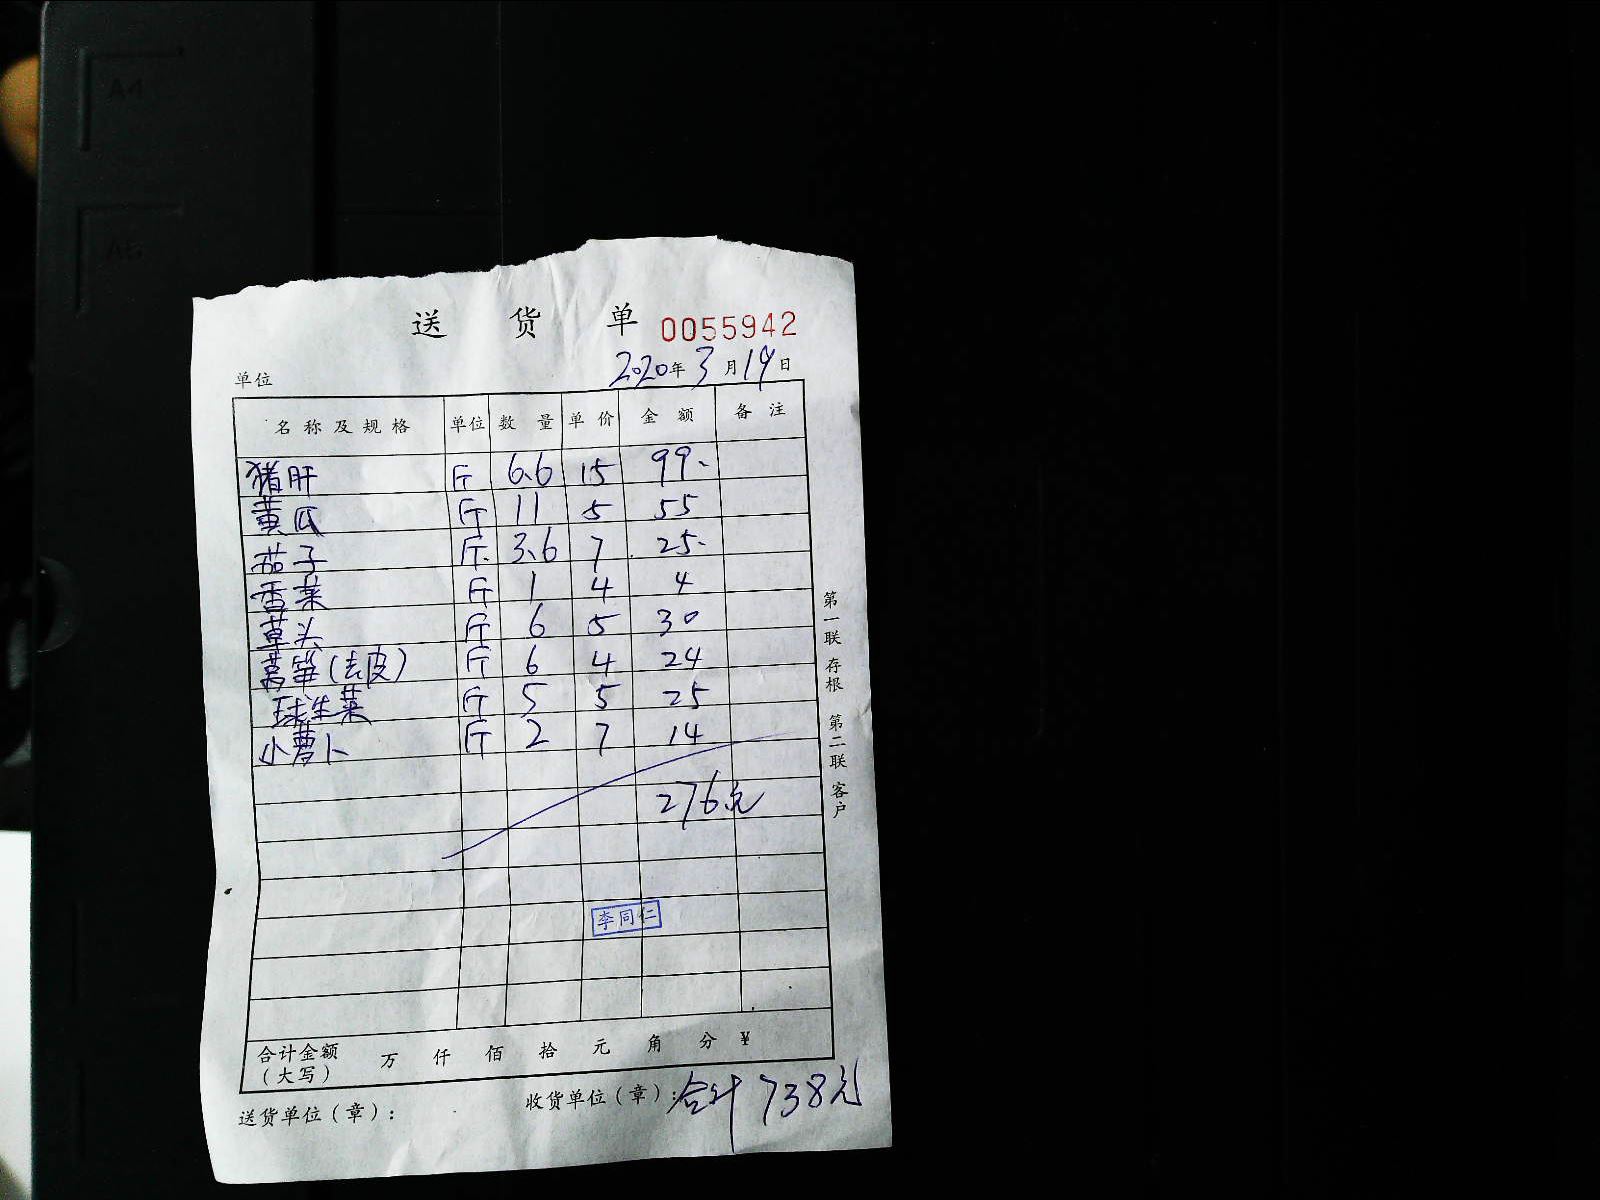 A4
A5
送 货 单 0055942
2020年3月19日
单位
名称及规格 单位 数量 单价 金额 备注
猪肝 斤 6.6 15 99.
黄瓜 斤 11 5 55
茄子 斤 3.6 7 25.
香菜 斤 1 4 4
草头 斤 6 5 30
莴笋(去皮) 斤 6 4 24
球生菜 斤 5 5 25
小萝卜 斤 2 7 14
276元
李同仁
合计金额 万 仟 佰 拾 元 角 分 ¥
(大写)
送货单位(章): 收货单位(章): 合计 738元
第一联 存根 第二联 客户